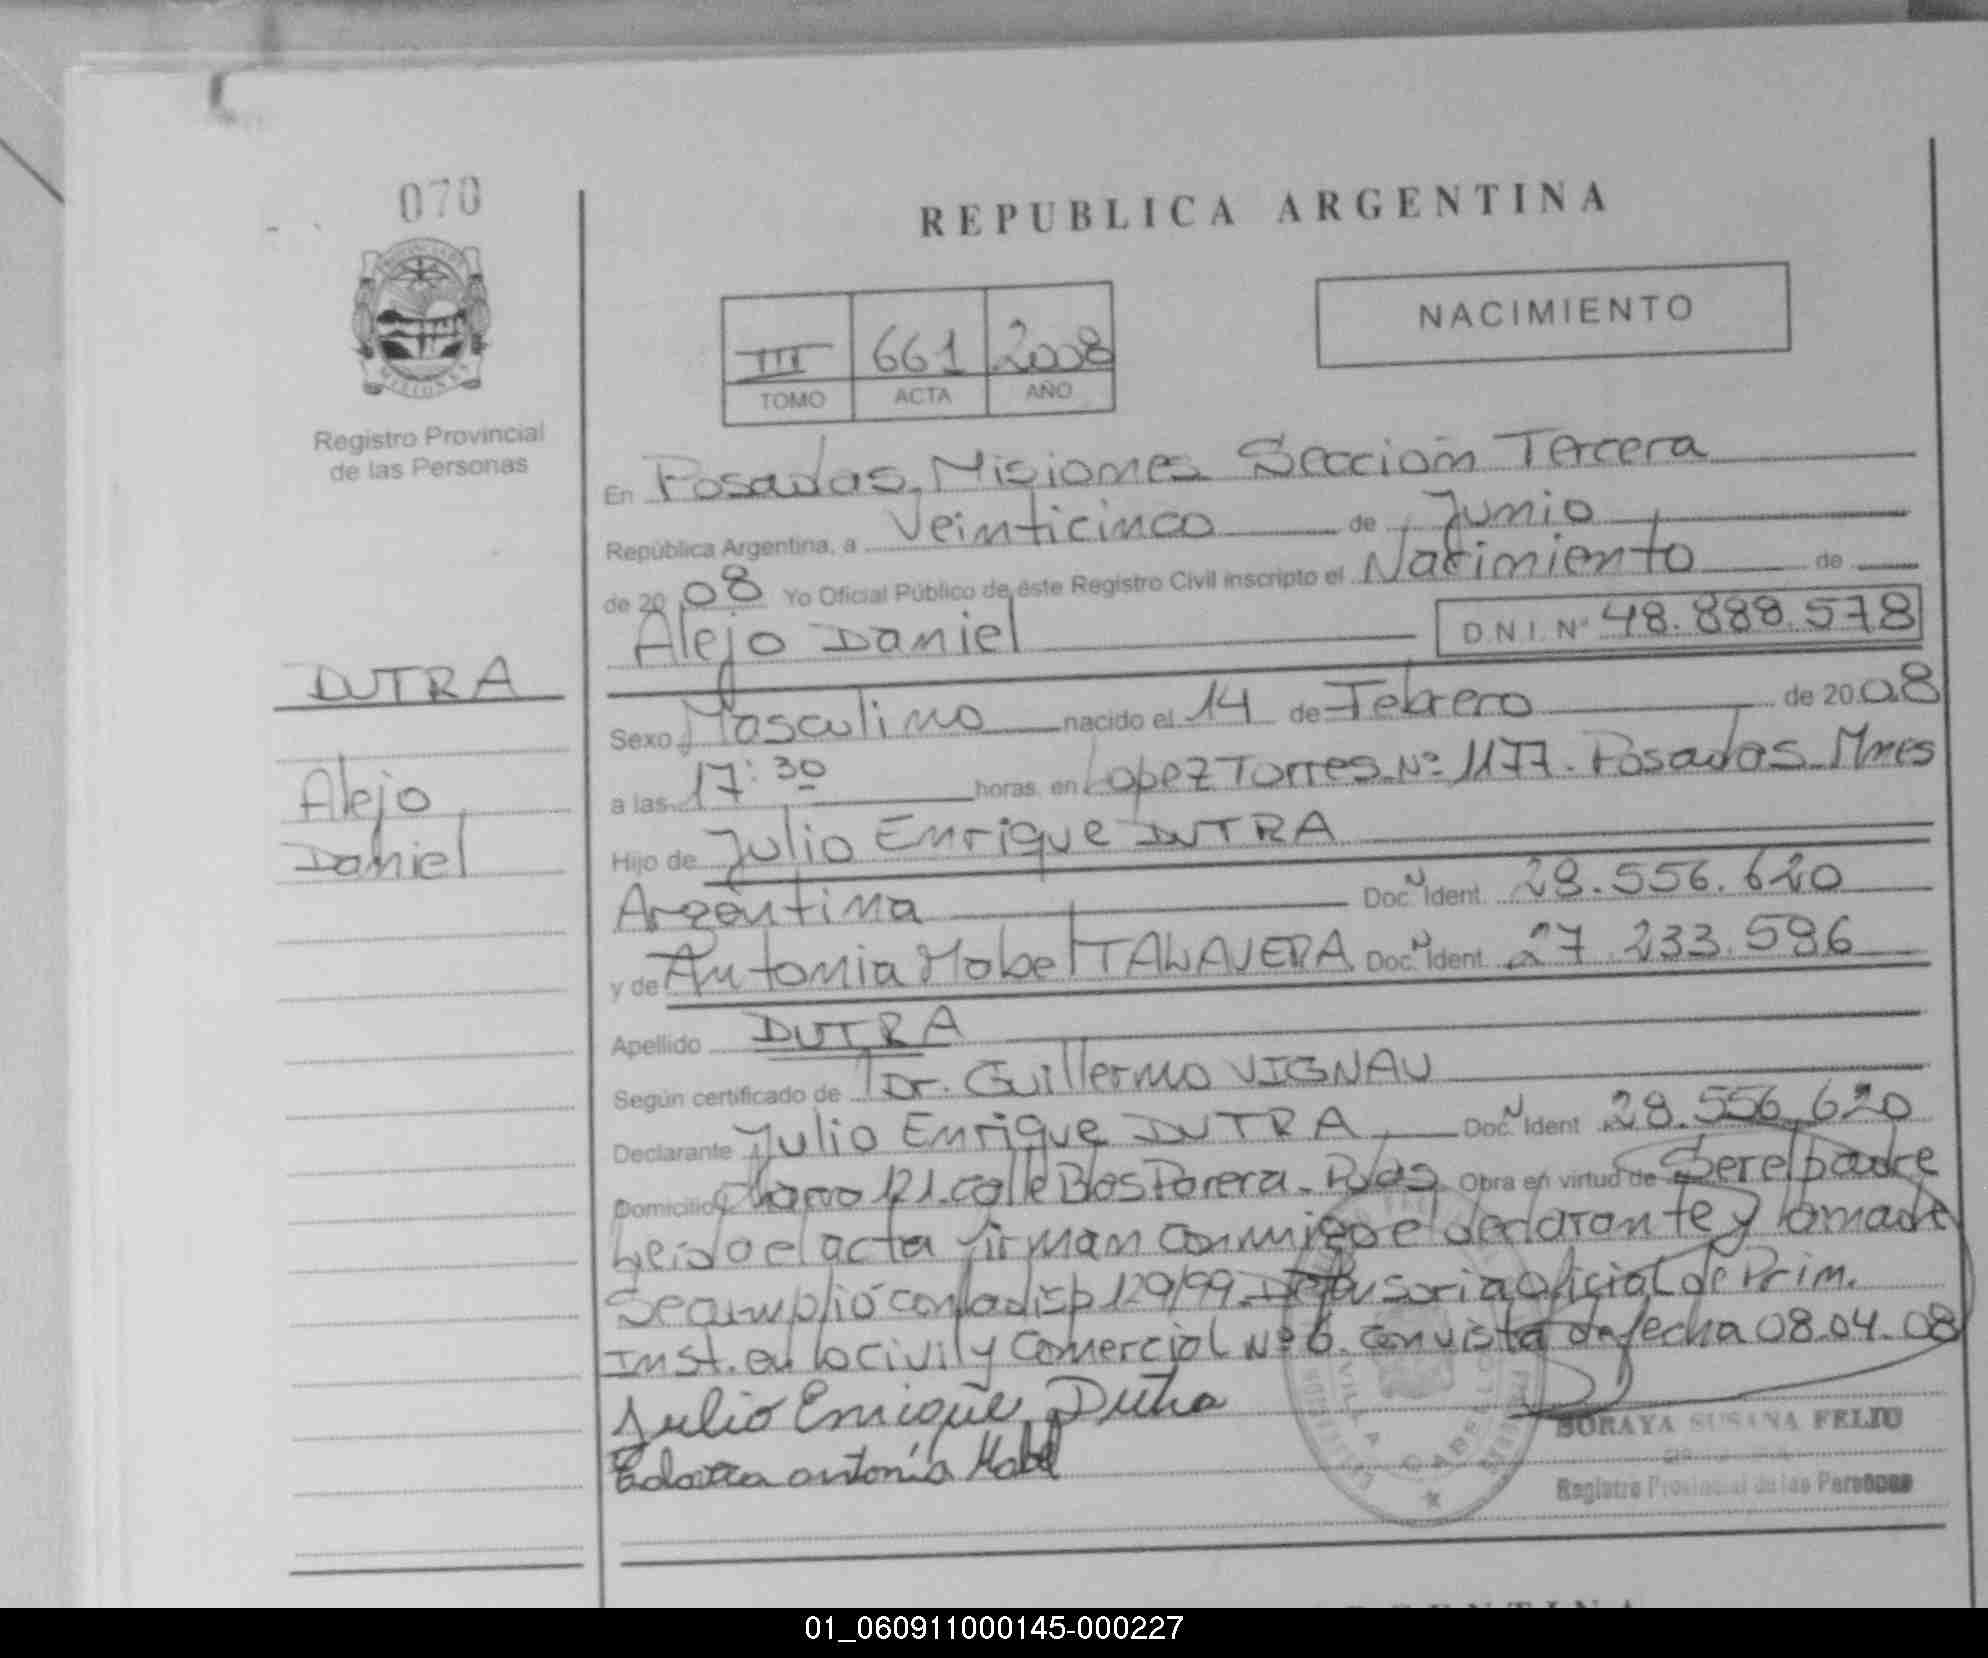 070
REPUBLICA ARGENTINA
NACIMIENTO
III 661 2008
TOMO ACTA AÑO
Registro Provincial
de las Personas
En Posadas, Misiones Sección Tercera
República Argentina, a Veinticinco de Junio
de 2008 Yo Oficial Público de éste Registro Civil inscripto el Nacimiento de
Alejo Daniel D.N.I. Nº 48.888.578
DUTRA
Alejo
Daniel
Sexo Masculino nacido el 14 de Febrero de 2008
a las 17:30 horas, en Lopez Torres Nº 1177. Posadas Mnes
Hijo de Julio Enrique DUTRA
Argentina Doc. Ident. 28.556.620
y de Antonia Mabel TALAVERA Doc. Ident. 27.233.596
Apellido DUTRA
Según certificado de Dr. Guillermo VIGNAU
Declarante Julio Enrique DUTRA Doc. Ident. 28.556.620
Domicilio 121. calle Blas Parera. Pdas Obra en virtud de Ser el padre
Leido el acta firman conmigo el declarante y la madre
Se cumplió con la disp 129/99. Defensoria Oficial de Prim.
Inst. en lo civil y Comercial Nº 6. con vista de fecha 08.04.08
Julio Enrique Dutra
antonia Mabel
VILLA CABELLO
SORAYA SUSANA FELIU
Registro Provincial de las Personas
ARGENTINA
01_060911000145-000227